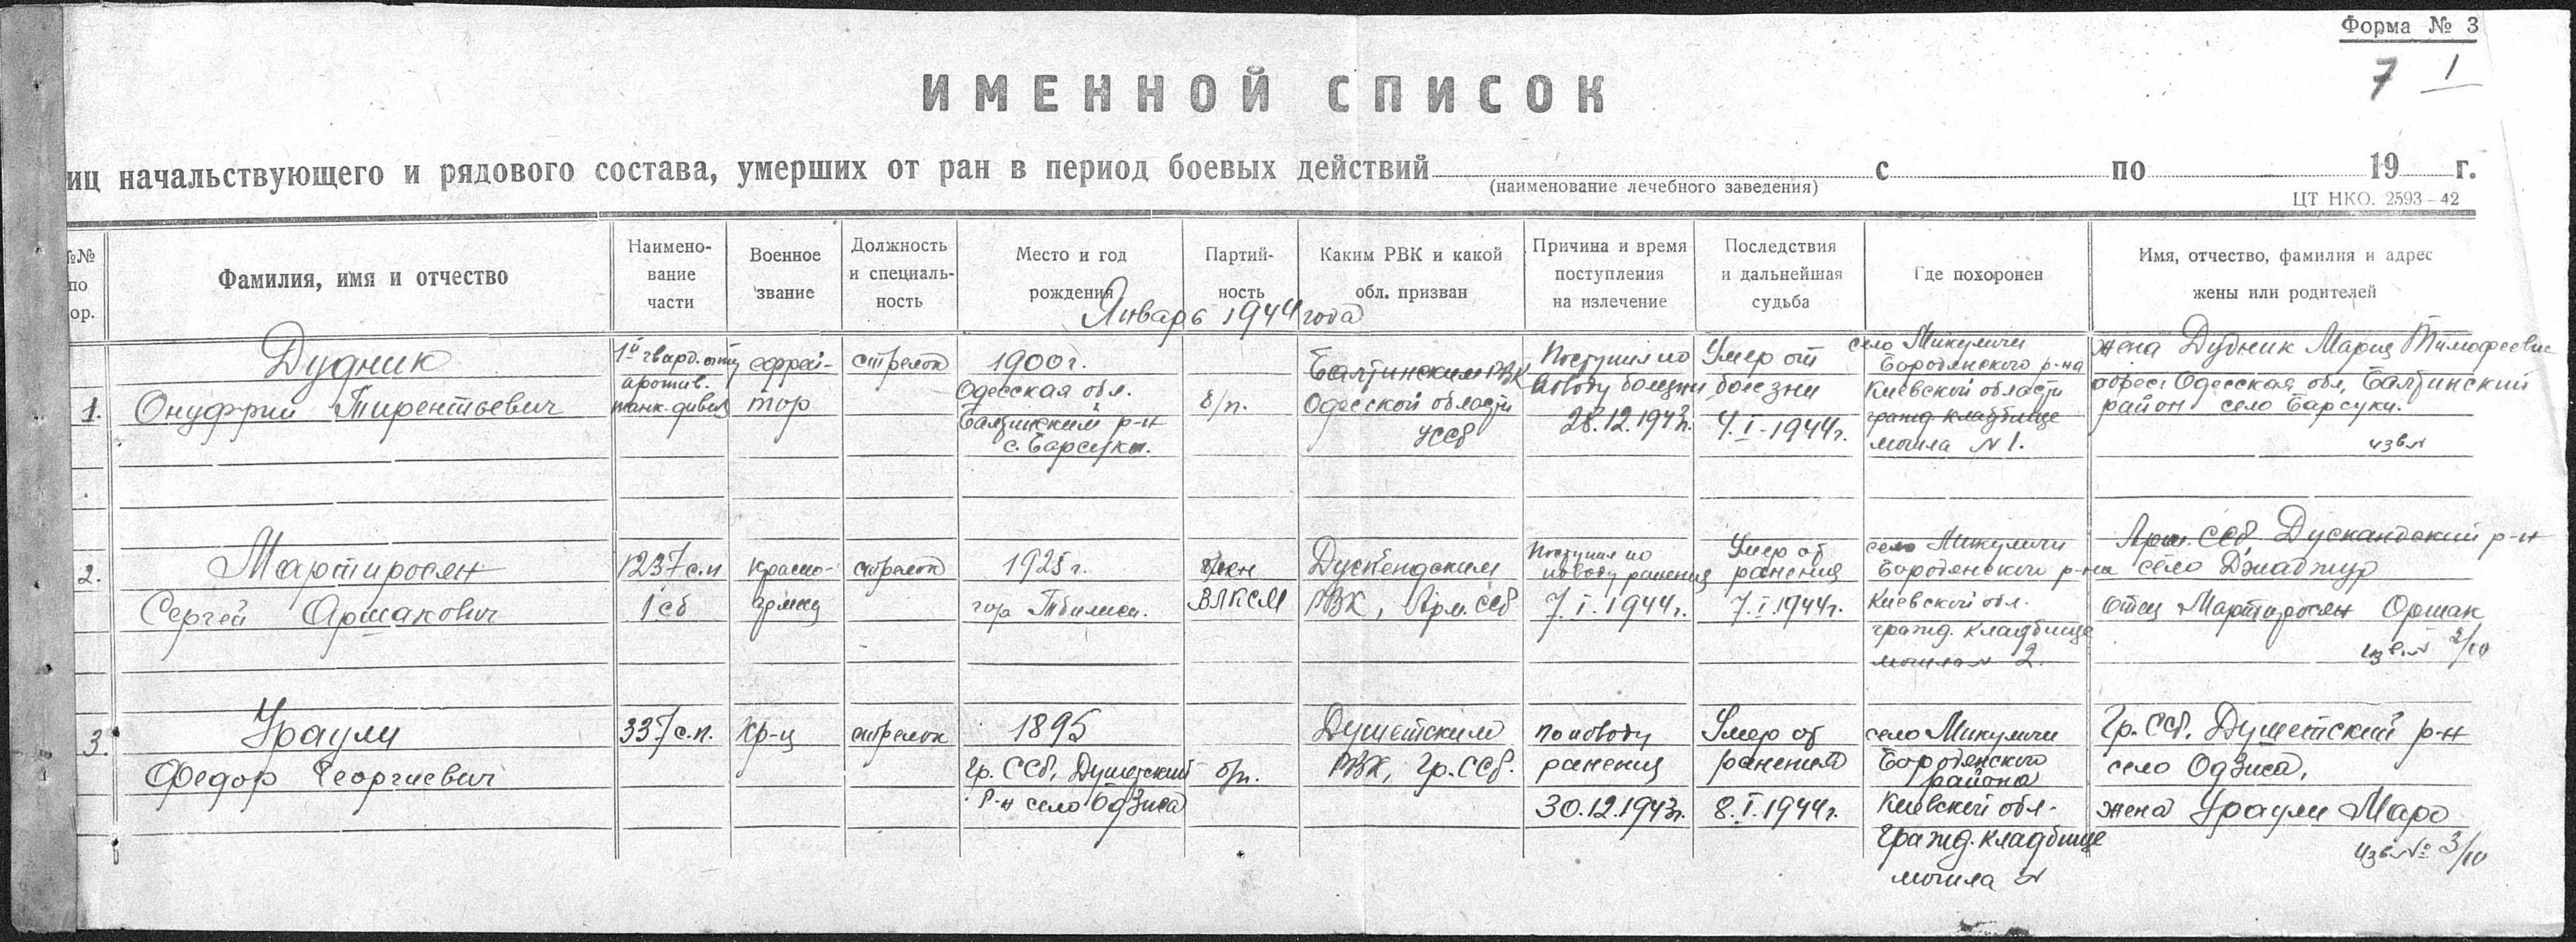 Форма № 3
7 1
ИМЕННОЙ СПИСОК
иц начальствующего и рядового состава, умерших от ран в период боевых действий с по 19 г.
(наименование лечебного заведения)
ЦТ НКО. 2593—42
№№ по ор.
Фамилия, имя и отчество
Наимено-
вание
части
Военное
звание
Должность
и специаль-
ность
Место и год
рождения
Партий-
ность
Каким РВК и какой
обл. призван
Причина и время
поступления
на излечение
Последствия
и дальнейшая
судьба
Где похоронен
Имя, отчество, фамилия и адрес
жены или родителей
Январь 1944 года
1.
Дудник
Онуфрий Тирентьевич
1й гвард.
против.
танк. дивиз
ефрей-
тор
стрелок
1900 г.
Одесская обл.
Балтинский р-н
с. Барсуки.
б/п.
Балтинским РВК
Одесской области
УССР
Поступил по
поводу болезни
28.12.1943г.
Умер от
болезни
4.I-1944г.
село Микуличи
Бородянского р-на
Киевской области
гражд кладбище
могила N 1.
жена Дудник Мария Тимофеевна
адрес: Одесская обл, Балтинский
район село Барсуки.
изв.N
2.
Мартиросян
Сергей Аршакович
1237 с.п
1 сб
красно-
армеец
стрелок
1925 г.
гор Тбилиси.
член
ВЛКСМ
Дускендским
РВК, Арм. ССР
Поступил по
поводу ранения
7.I.1944г.
Умер от
ранения
7.I.1944г.
село Микуличи
Бородянского р-на
Киевской обл.
гражд. кладбище
могила N 2.
Арм. ССР, Дускандский р-н
село Джаджур
отец Мартиросян Оршак
изв.N 2/10
3.
Ураули
Федор Георгиевич
337 с.п.
кр-ц
стрелок
1895
Гр. ССР, Душетский
р-н село Одзиса
б/п.
Душетским
РВК, Гр. ССР.
по поводу
ранения
30.12.1943г.
Умер от
ранения
8.I.1944г.
село Микуличи
Бородянского
района
Киевской обл.
гражд. кладбище
могила N
Гр. ССР, Душетский р-н
село Одзиса,
жена Ураули Маро
изв.№ 3/10